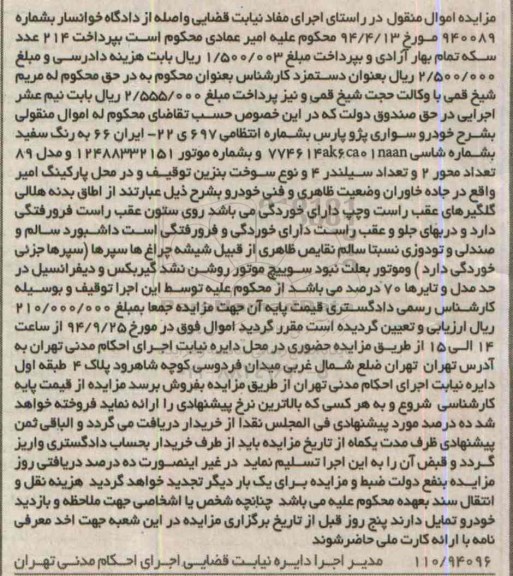 مزایده اموال منقول در راستای اجرای مفاد نیابت قضایی واصله از دادگاه خوانسار بشماره
۹۴۰۰۸۹ مورخ ۹۴/۴/۱۳ محکوم علیه امیر عمادی محکوم است بپرداخت ۲۱۴ عدد
سکه تمام بهار آزادی و بپرداخت مبلغ ۱/۵۰۰/۰۰۳ ریال بابت هزینه دادرسی و مبلغ
۲/۵۰۰/۰۰۰ ریال بعنوان دستمزد کارشناس بعنوان محکوم به در حق محکوم له مریم
شیخ قمی با وکالت حجت شیخ قمی و نیز پرداخت مبلغ ۲/۵۵۵/۰۰۰ ریال بابت نیم عشر
اجرایی در حق صندوق دولت که در این خصوص حسب تقاضای محکوم له اموال منقولی
بشرح خودرو سواری پژو پارس بشماره انتظامی ۶۹۷ ی ۲۲- ایران ۶۶ به رنگ سفید
بشماره شاسی ۷۷۴۶۱۴ak۶ca۰۱naan و بشماره موتور ۱۲۴۸۸۳۳۲۱۵۱ و مدل ۸۹
تعداد محور ۲ و تعداد سیلندر ۴ و نوع سوخت بنزین توقیف و در محل پارکینگ امیر
واقع در جاده خاوران وضعیت ظاهری و فنی خودرو بشرح ذیل عبارتند از اطاق بدنه هلالی
گلگیرهای عقب راست وچپ دارای خوردگی می باشد روی ستون عقب راست فرورفتگی
دارد و دربهای جلو و عقب راست دارای خوردگی و فرورفتگی است داشبورد سالم و
صندلی و تودوزی نسبتا سالم نقایص ظاهری از قبیل شیشه چراغ ها سپرها (سپرها جزئی
خوردگی دارد ) وموتور بعلت نبود سوییچ موتور روشن نشد گیربکس و دیفرانسیل در
حد مدل و تایرها ۷۰ درصد می باشد از محکوم علیه توسط این اجرا توقیف و بوسیله
کارشناس رسمی دادگستری قیمت پایه آن جهت مزایده جمعا بمبلغ ۲۱۰/۰۰۰/۰۰۰
ریال ارزیابی و تعیین گردیده است مقرر گردید اموال فوق در مورخ ۹۴/۹/۲۵ از ساعت
۱۴ الی ۱۵ از طریق مزایده حضوری در محل دایره نیابت اجرای احکام مدنی تهران به
آدرس تهران تهران ضلع شمال غربی میدان فردوسی کوچه شاهرود پلاک ۴ طبقه اول
دایره نیابت اجرای احکام مدنی تهران از طریق مزایده بفروش برسد مزایده از قیمت پایه
کارشناسی شروع و به هر کسی که بالاترین نرخ پیشنهادی را ارائه نماید فروخته خواهد
شد ده درصد مورد پیشنهادی فی المجلس نقدا از خریدار دریافت می گردد و الباقی ثمن
پیشنهادی ظرف مدت یکماه از تاریخ مزایده باید از طرف خریدار بحساب دادگستری واریز
گردد و قبض آن را به این اجرا تسلیم نماید در غیر اینصورت ده درصد دریافتی روز
مزایده بنفع دولت ضبط و مزایده برای یک بار دیگر تجدید خواهد گردید هزینه نقل و
انتقال سند بعهده محکوم علیه می باشد چنانچه شخص یا اشخاصی جهت ملاحظه و بازدید
خودرو تمایل دارند پنج روز قبل از تاریخ برگزاری مزایده در این شعبه جهت اخذ معرفی
نامه با ارائه کارت ملی حاضرشوند
۱۱۰/۹۴۰۹۶ مدیر اجرا دایره نیابت قضایی اجرای احکام مدنی تهران